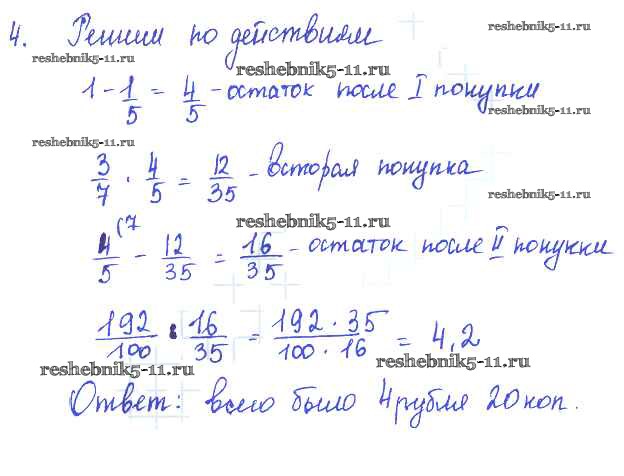 4. Решим по действиям
reshebnik5-11.ru
reshebnik5-11.ru
reshebnik5-11.ru
1 - 1/5 = 4/5 - остаток после I покупки
reshebnik5-11.ru
reshebnik5-11.ru
3/7 · 4/5 = 12/35 - всторая покупка
reshebnik5-11.ru
reshebnik5-11.ru
reshebnik5-11.ru
4(7/5 - 12/35 = 16/35 - остаток после II покупки
192/100 : 16/35 = 192 · 35/100 · 16 = 4,2
reshebnik5-11.ru
reshebnik5-11.ru
Ответ: всего было 4 рубля 20 коп.